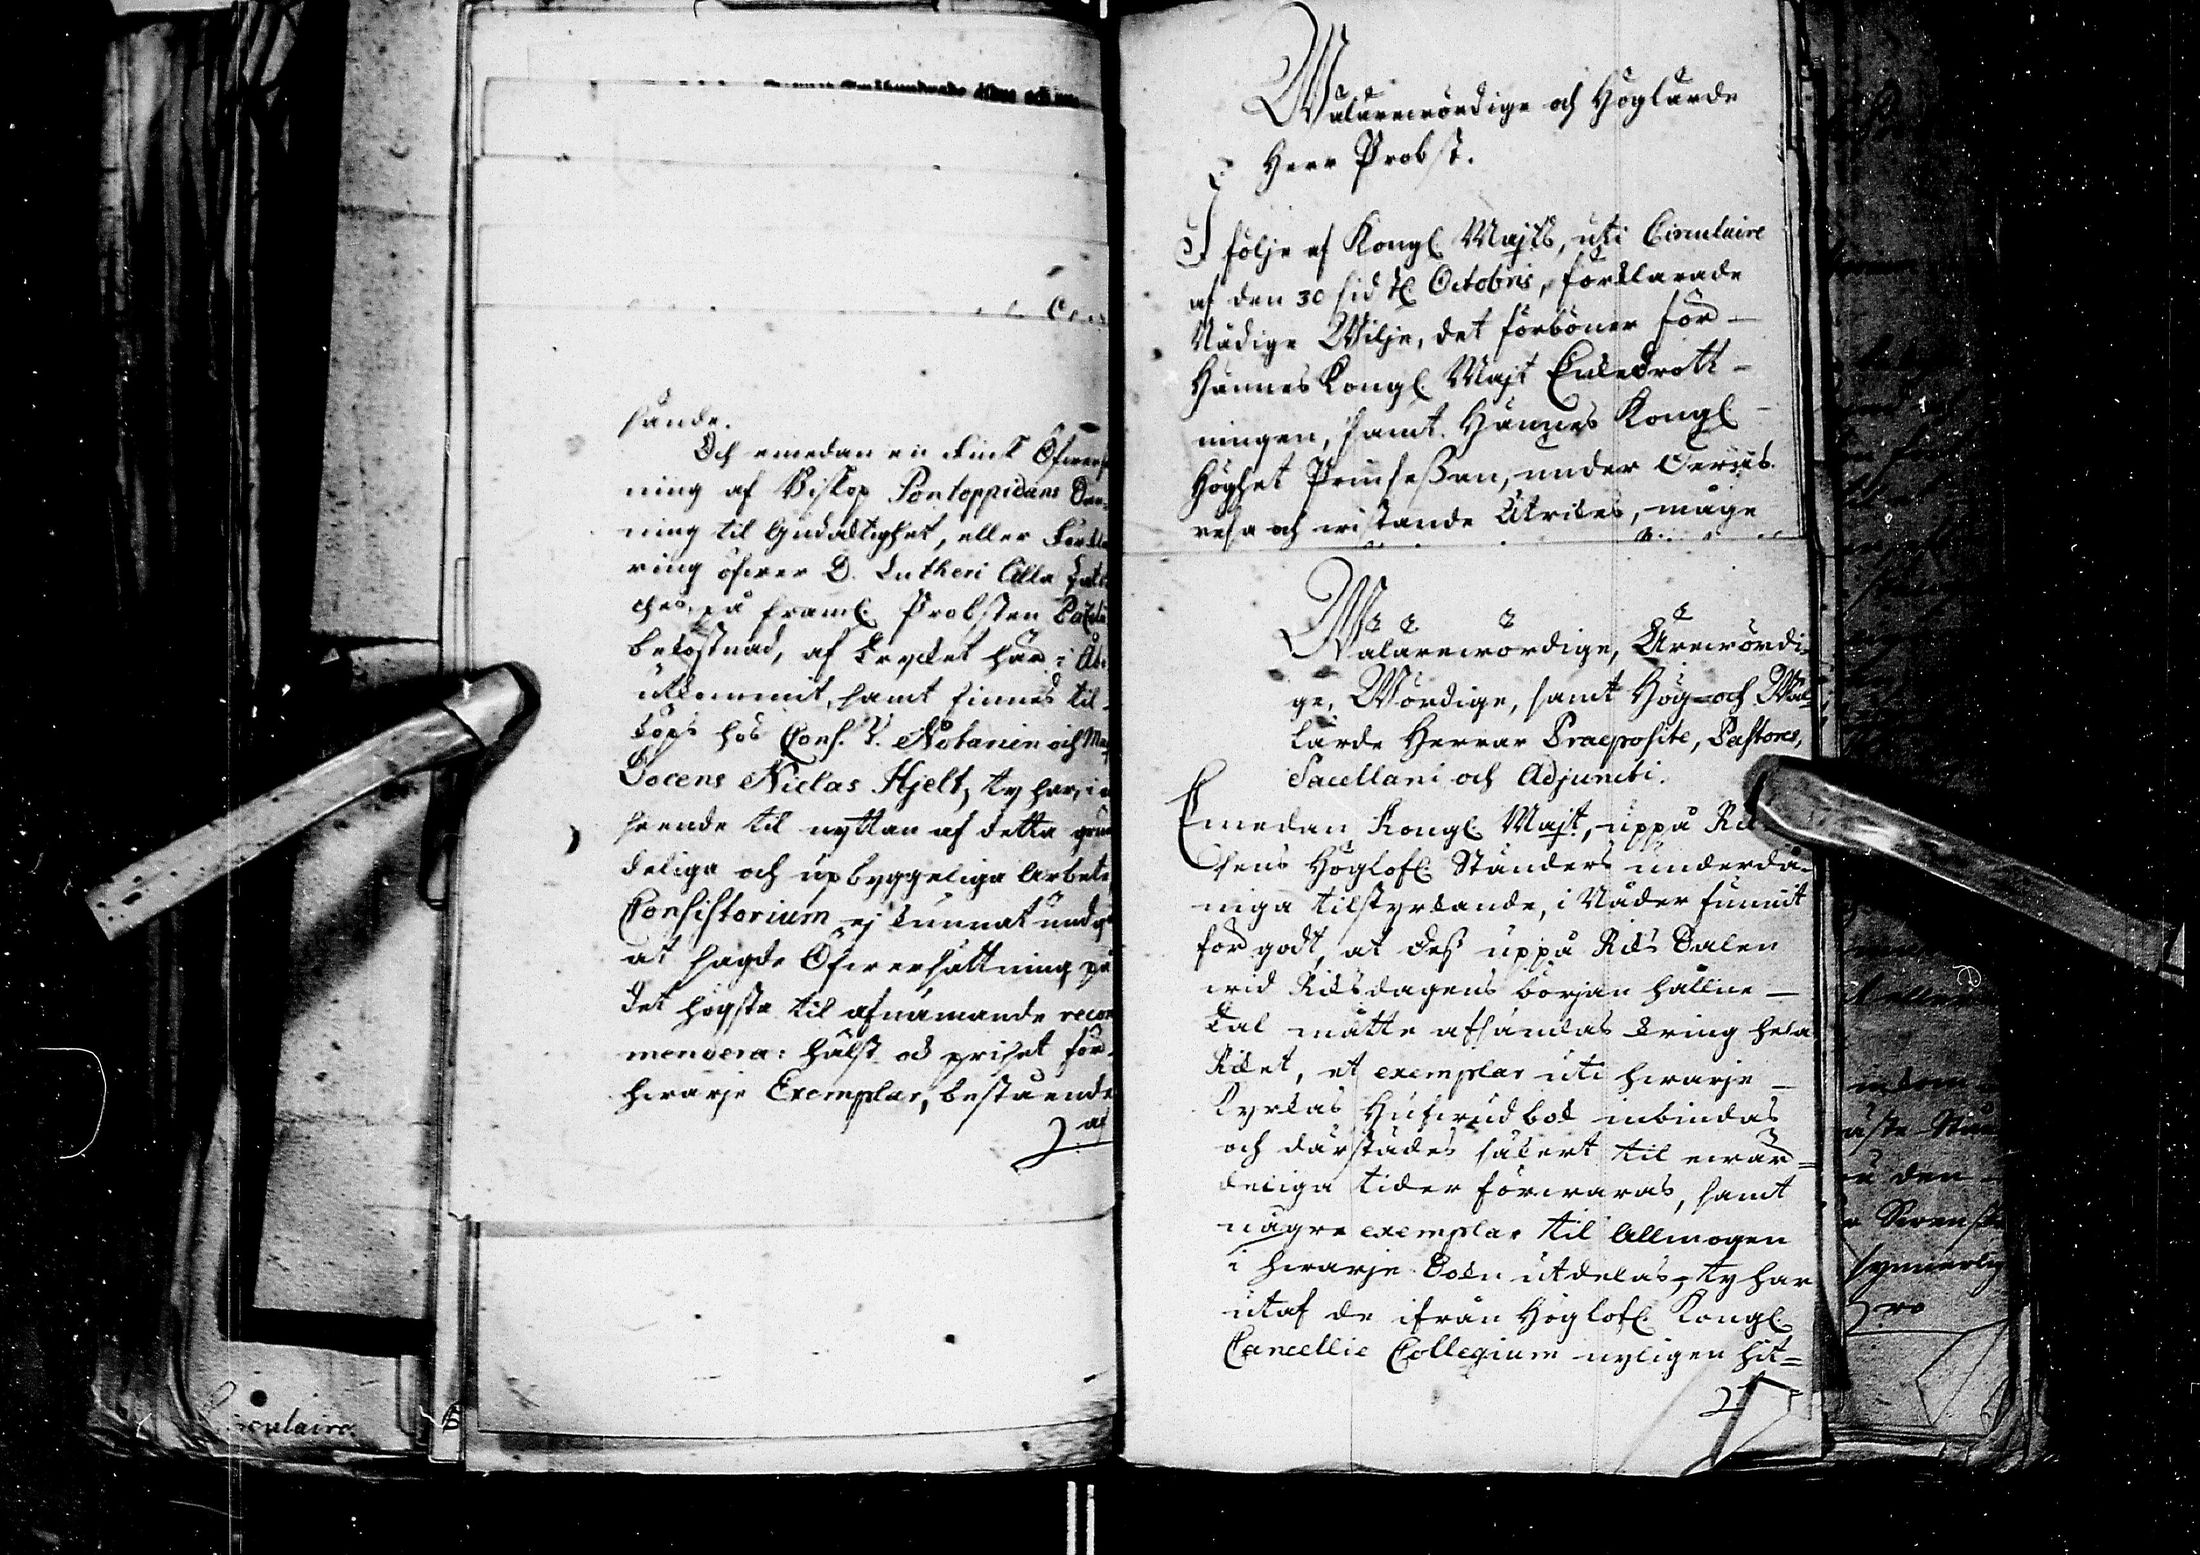 sände.
Och emedan en Finsk Öfwers
ning af Biskop Pontoppidans San
ning til Gudaktighet, eller Förkla
ring öfwer D. Lutheri lilla Cate
ches, på framl. Probsten
bekostnad, af trycket här i Åb
utkommit, samt finnes til
köps hos Cons. V. Notarien och Mag
Docens Niclas Hjelt, ty har, i an
seende til nyttan af detta grun
deliga och upbyggeliga Arbete,
Consistorium ej kunnat undgå
at sagde Öfwersättning på
det högsta til afnämande recom
mendera: hälst ock priset för
hwarje Exemplar, bestående
af
Wälärewördige och Höglärde
Herr Probst.
I följe af Kongl. Majts, uti Circulaire
af den 30 sidstl. Octobris, förklarade
Nådige Wilje, det förböner för
Hännes Kongl. Majt Enkedrott-
ningen, samt Hännes Kongl.
Höghet Prinsessan, under Deras
resa och wistande Utrikes, måge
Wälärewördige, Ärewördi-
ge, Wördige, samt Hög- och Wäl-
lärde Herrar Praeposite, Pastores,
Sacellani och Adjuncti.
Emedan Kongl. Majt, uppå Rik-
sens Höglofl. Ständers underdå-
niga tilstyrkande, i Nåder funnit
för godt, at dess uppå Riks Salen
wid Riksdagens början hållne
tal måtte afsändas kring hela
Riket, et exemplar uti hwarje
Kyrkas Hufwudbok inbindas
och därstädes säkert til ewär-
deliga tider förwaras, samt
några exemplar til Allmogen
i hwarje Sokn utdelas, ty har
utaf de ifrån Höglofl. Kongl.
Cancellie Collegium nyligen hit-
Circulaire.
eller
den
Swenska
synnerlig